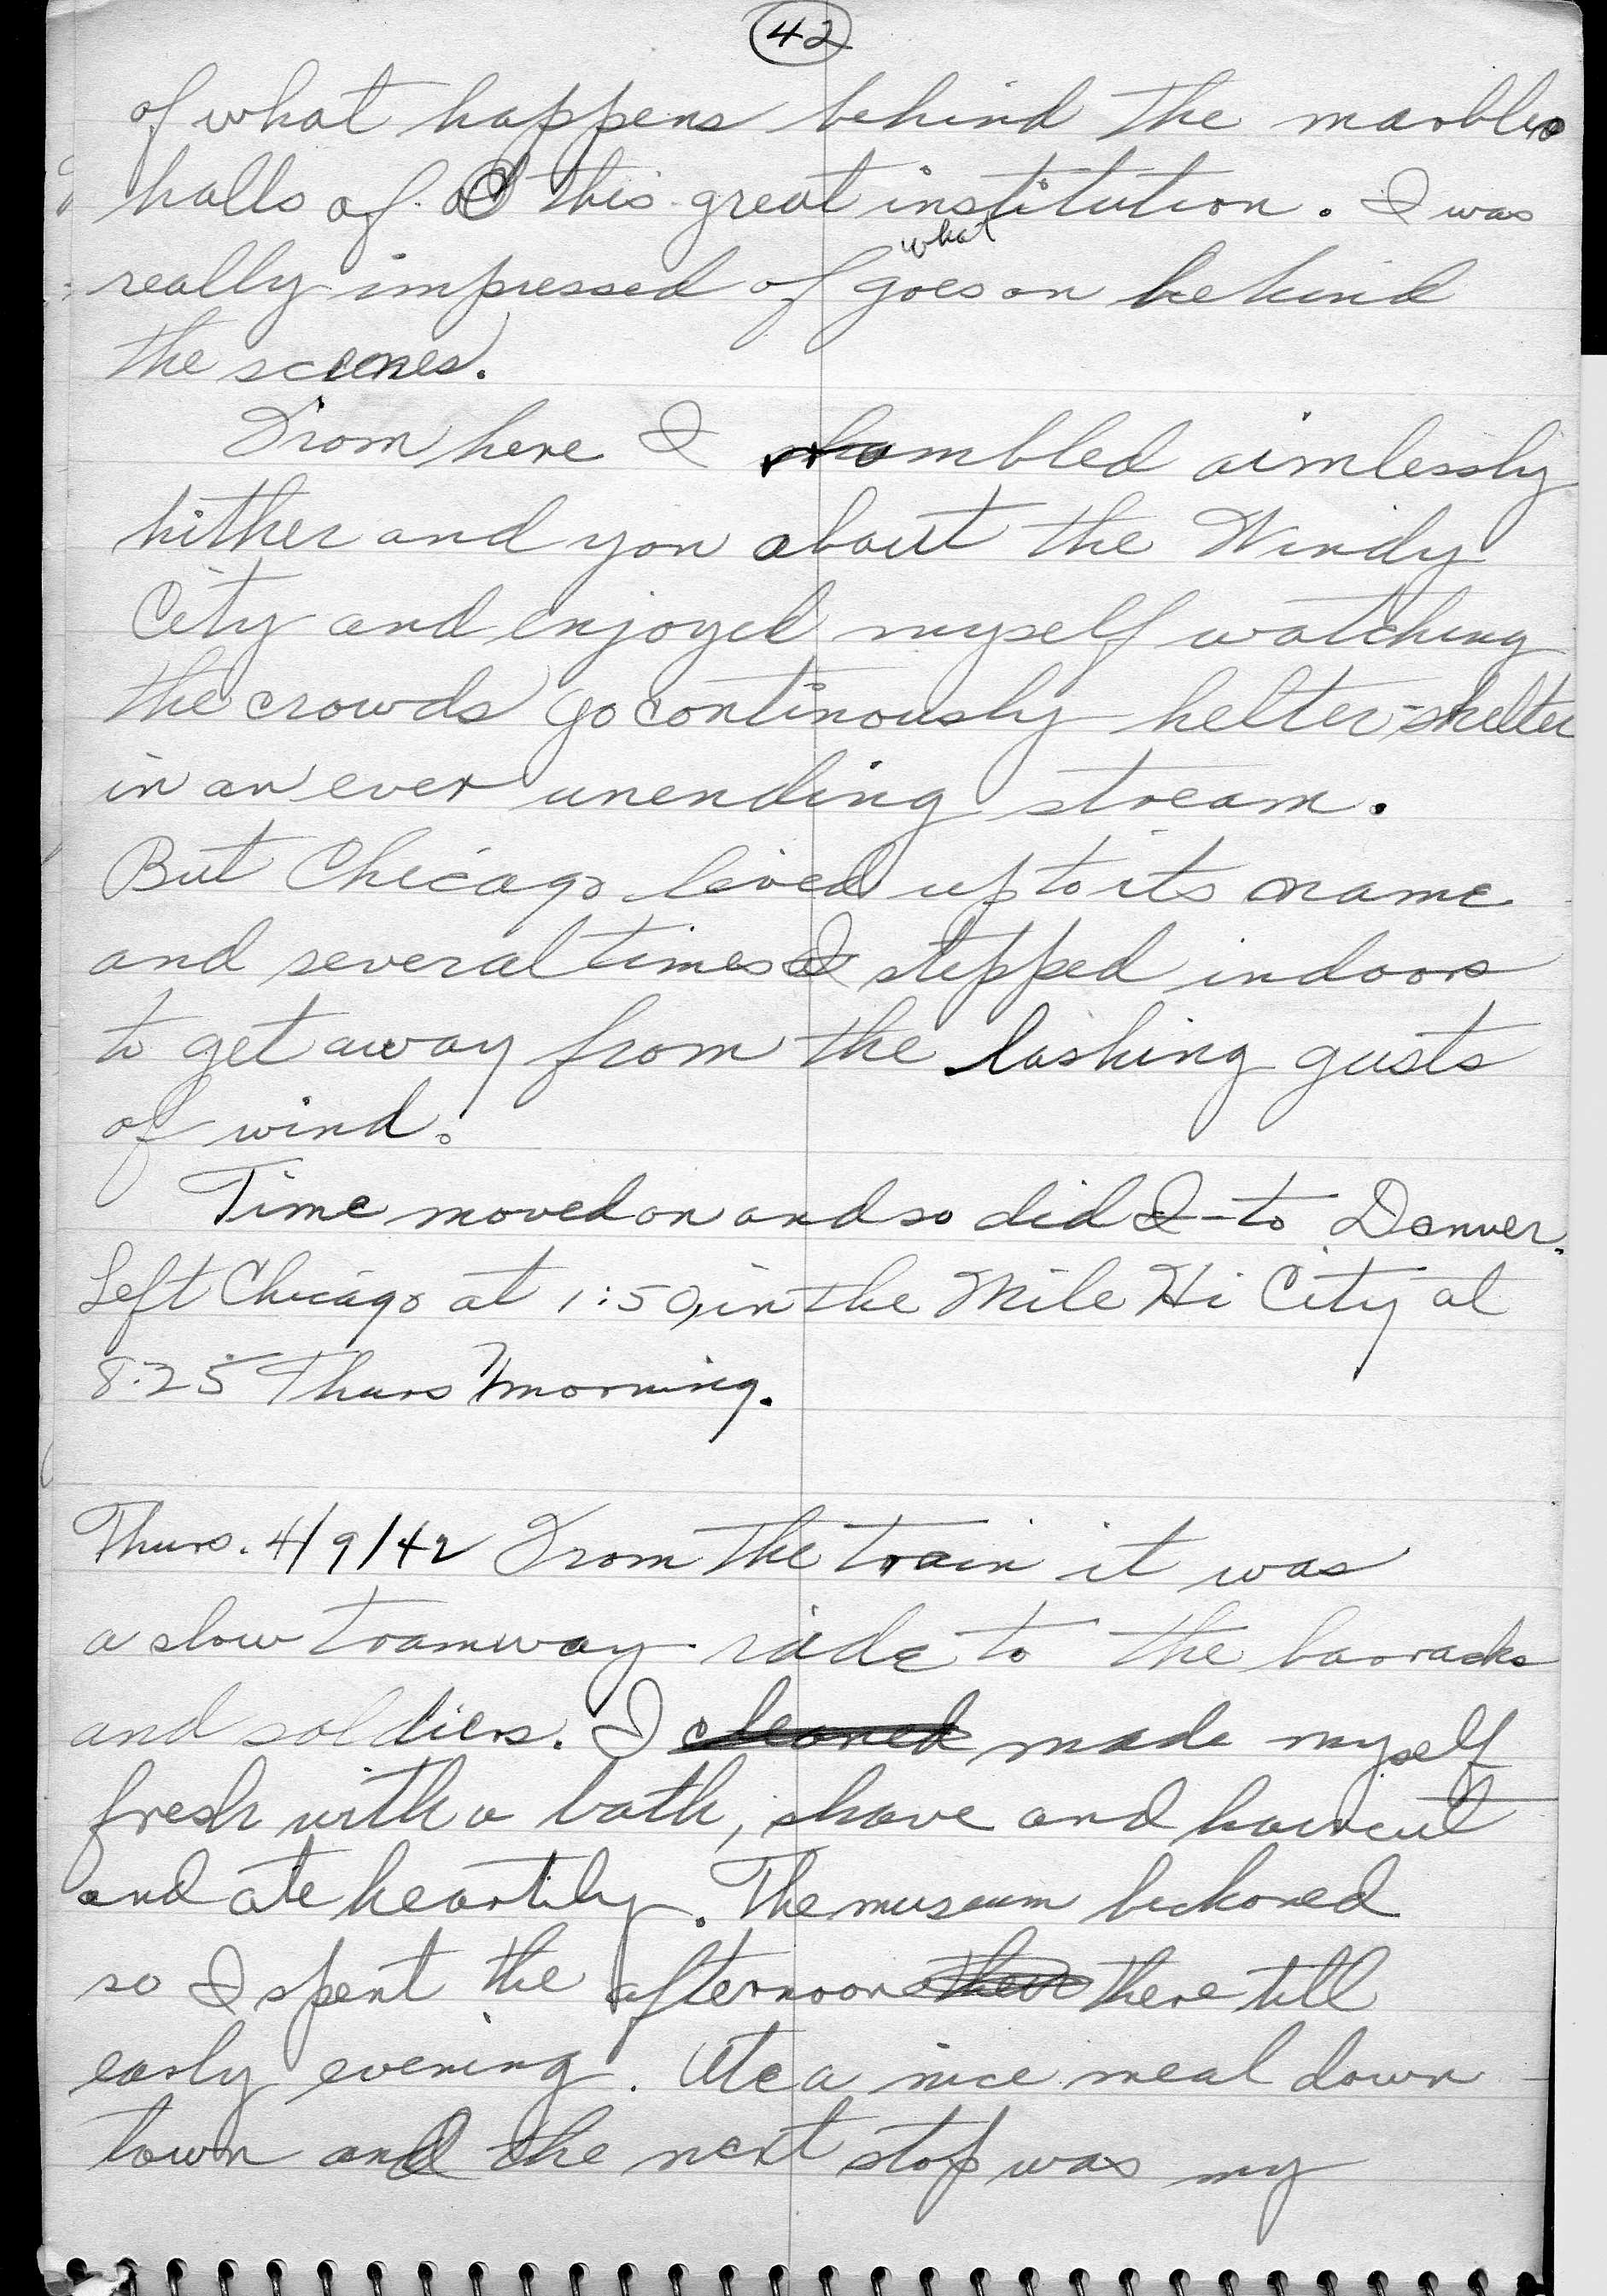 42
of what happens behind the marble
halls of this great institution. I was
what
really impressed of goes on behind
the scenes.
From here I rambled aimlessly
hither and yon about the Windy
City and enjoyed myself watching
the crowds go continously helter-skelter
in an ever unending stream.
But Chicago lived up to its name
and several times I stepped indoors
to get away from the lashing gusts
of wind.
Time moved on and so did I - to Denver.
Left Chicago at 1:50, in the Mile Hi City at
8:25 Thurs morning.
Thurs. 4/9/42 From the train it was
a slow tramway ride to the barracks
and soldiers. I cleaned made myself
fresh with a bath, shave and haircut
and ate heartily. The museum beckoned
so I spent the afternoon there there till
early evening. Ate a nice meal down
town and the next stop was my